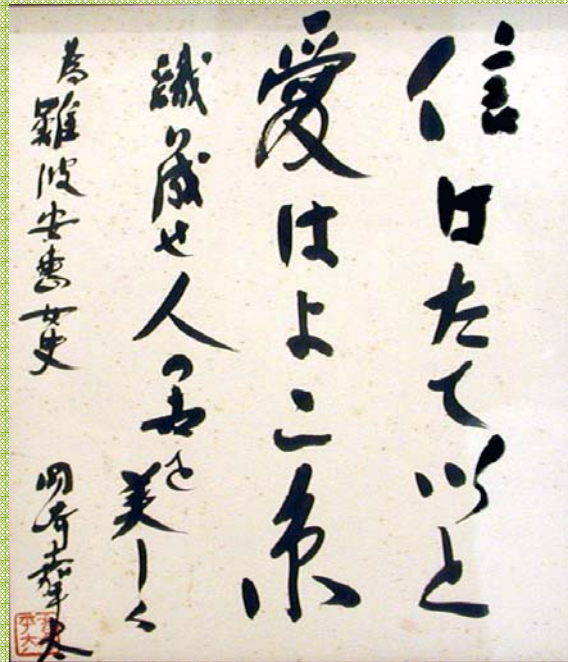 信はたていと
愛はよこ糸
織り成せ人の世を美しく
為難波安恵女史
岡崎嘉平太